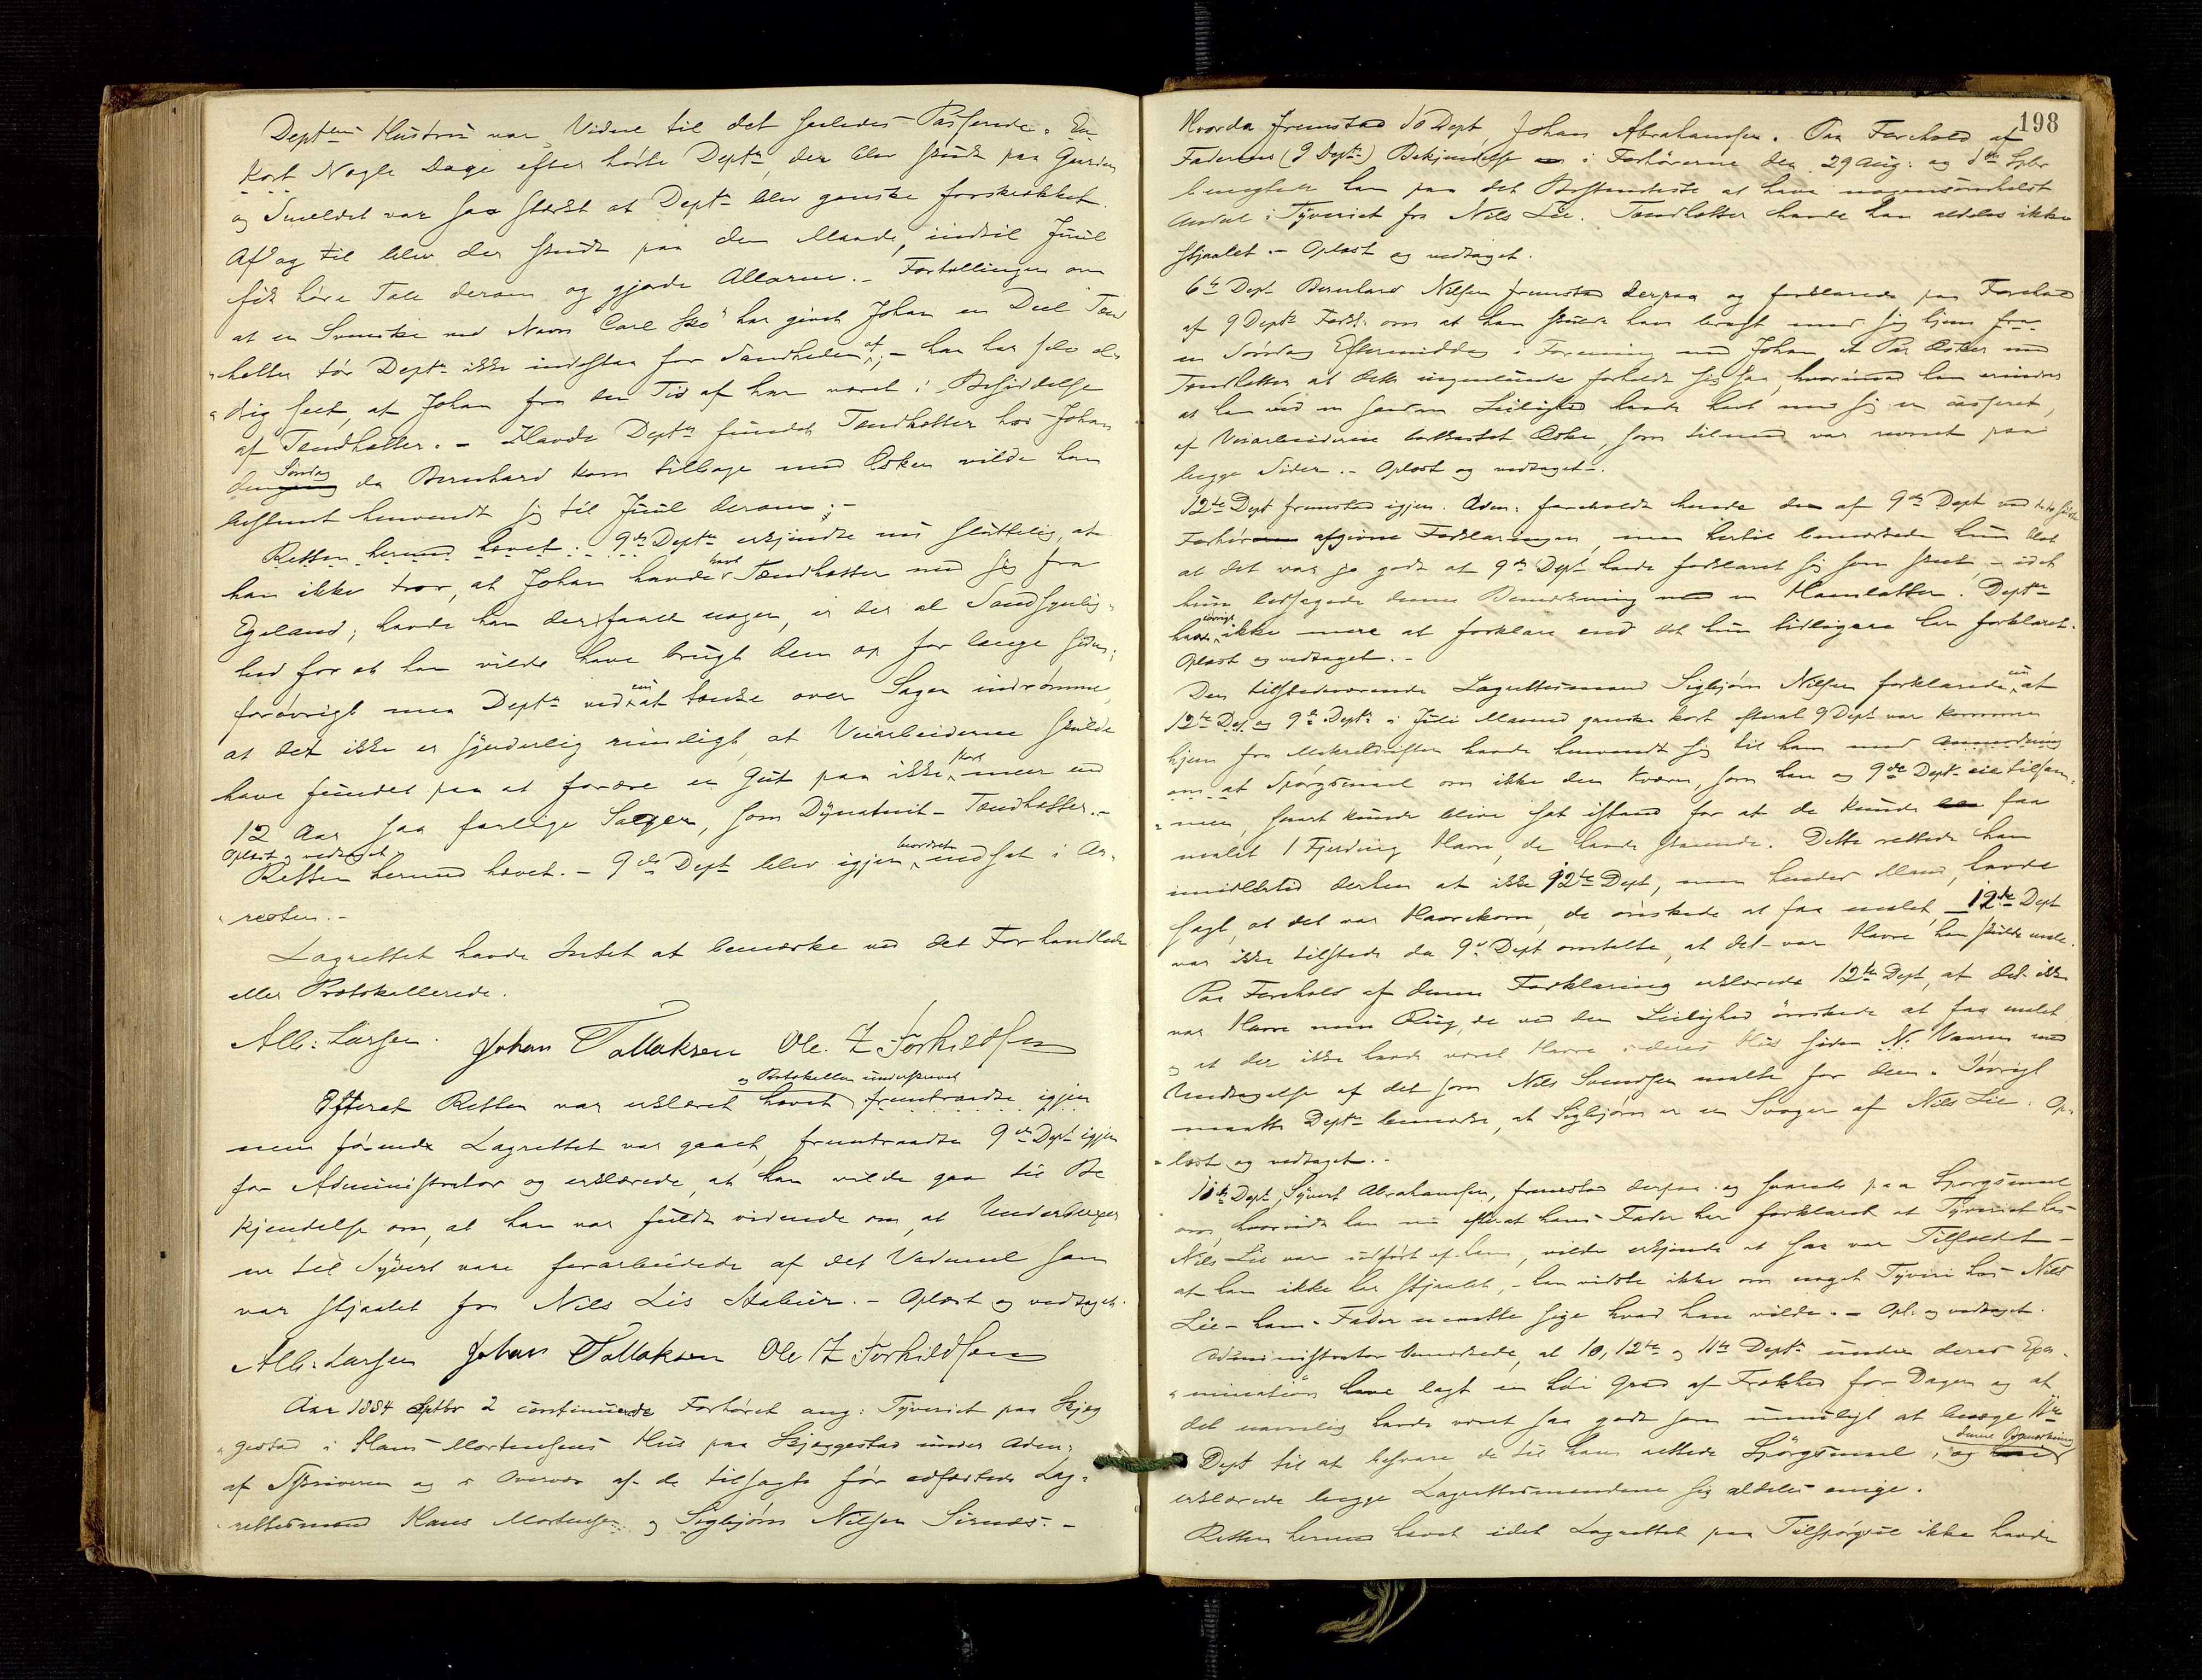 Deptens Hustru var Vidne til det saaledes Passerede. En
kort Nogle Dage efter hørte Deptn, der blev skudt paa Gaarden
og Smeldet var saa stærkt at Deptn blev ganske forskrækket.
Af og til blev der skudt paa den Maade, indtil Juul
fik høre Tale derom og gjorde Allarm. - Fortællingen om
at en Svenske ved Navn Carl har givet Johan en Deel Tænd
hætter tør Deptn ikke indestaa for Sandheden af; - han har selv al-
drig seet, at Johan fra den Tid af har været i Besiddelse
af Tændhætter. - Havde Deptn fundet Tændhætter hos Johan
den Søndag da Bernhard kom tilbage med Æsken vilde han
bestemt henvendt sig til Juul derom; -
Retten hermed hævet. 9de Deptn erkjendte nu sluttelig, at
han ikke tror, at Johan havde havt Tændhætter med sig fra
Egeland; havde han der faaet nogen, er der al Sandsynlig-
hed for at han vilde have brugt dem op for længe siden;
forøvrigt maa Deptn ved nu at tænke over Sagen indrømme,
at det ikke er synderlig rimeligt, at Veiarbeiderne skulde
have fundet paa at forære en Gut paa ikke stort mere end
12 Aar saa farlige Sager, som Dynamit-Tændhætter. -
Oplæst og vedtaget -
Retten hermed hævet. - 9de Dept blev igjen indsat i Ar-
resten. -
Lagrettet havde Intet at bemærke ved det Forhandlede
eller Protokollerede.
Alb: Larsen. Johan Tallaksen Ole Z Torkildsen
og Protokollen underskrevet
Efterat Retten var erklæret hævet fremtraadte igjen
men førend Lagrettet var gaaet, fremtraadte 9de Dept igjen
for Administrator og erklærede, at han vilde gaa til Be
kjendelse om, at han var fuldt vidende om, at Underbuxer
ne til Syvert vare forarbeidede af det Vadmel som
var stjaalet fra Nils Lis Stabur. - Oplæst og vedtaget.
Alb: Larsen Johan Tallaksen Ole Z Torkildsen
Aar 1884 Septbr 2 continuerede Forhøret ang: Tyveriet paa Skjæg
gestad i Hans Mortensens Hus paa Skjeggestad under Adm:
af Skriveren og i Overvær af de tilsagte før edfæstede Lag-
rettesmænd Hans Mortensen og Sigbjørn Nilsen Sirnes. -
198
Hvorda fremstod 10 Dept, Johan Abrahamsen. Paa Forehold af
Faderens (9 Deptn) Bekjendelse i Forhørerne den 29 Aug: og 1ste Spbr
benegtede han paa det Bestemteste at have nogensomhelst
Andeel i Tyveriet fra Nils Lie. Tændhætter havde han aldeles ikke
stjaalet. - Oplæst og vedtaget.
6te Dept Bernhard Nilsen fremstod derpaa og forklarede paa Forehold
af 9 Depts Forkl: om at han skulde have bragt med sig hjem fra
en Søndag Eftermiddag i Forening med Johan et Par Æsker med
Tændhætter at dette ingenlunde forholdt sig saa, hvorimod han erindrer
at han ved en saadan Leilighed havde havt med sig en casseret,
af Veiarbeiderne bortkastet Æske, som tilmed var revnet paa
begge Sider. - Oplæst og vedtaget. -
12te Dept fremstod igjen. Adm: foreholdt hende den af 9de Dept ved de to sidste
Forhør afgivne Forklaringer, men hertil bemærkede hun blot
at det var jo godt at 9de Dept havde forklaret sig som skeet, - idet
hun ledsagede denne Bemærkning med en Haanlatter. Deptn
havde øvrigt ikke mere at forklare end det hun tidligere har forklaret.
Oplæst og vedtaget. -
Den tilstedeværende Lagrettesmand Sigbjørn Nilsen forklarede nu at
12te Dep og 9de Deptn i Juli Maaned ganske kort efterat 9 Dept var kommen
hjem fra Makreldriften havde henvendt sig til ham med Anmodning
om at Spørgsmaal om ikke den Kværn, som han og 9de Dept eie tilsam-
men, snart kunde blive sat istand for at de kunde faa
malet 1 Fjerding Havre, de havde staaende. Dette rettede han
imidlertid derhen at ikke 12te Dept, men hendes Mand, havde
sagt, at det var Havrekorn, de ønskede at faa malet, - 12te Dept
var ikke tilstede da 9de Dept omtalte, at det var Havre han skulde male.
Paa Forehold af denne Forklaring erklærede 12te Dept, at det ikke
var Havre men Rug, de ved den Leilighed ønskede at faa malet
og at der ikke havde været Havre i deres Hus siden Vaaren med
Undtagelse af det som Nils Svendsen malte for dem. Iøvrigt
maatte Deptn bemærke, at Sigbjørn er en Svoger af Nils Lie. Op-
læst og vedtaget. -
11te Dept, Syvert Abrahamsen, fremstod derpaa og svarede paa Spørgsmaal
om, hvorvidt han nu efterat hans Fader har forklaret at Tyveriet hos
Nils Lie var udført af ham, vilde erkjende at saa var Tilfældet -
at han ikke har stjaalet, - han vidste ikke om noget Tyveri hos Nils
Lie - hans Fader maatte sige hvad han vilde. - Opl: og vedtaget.
Administrator bemærkede, at 10, 12te og 11te Deptn under deres Exa-
mination have lagt en høi Grad af Frækhed for Dagen og at
det navnlig havde været saa godt som umuligt at bevæge 11te
Dept til at besvare de til ham rettede Spørgsmaal, og denne Bemærkning
erklærede begge Lagrettesmændene sig aldeles enige.
Retten hermed hævet idet Lagrettet paa Tilspørgsel ikke havde